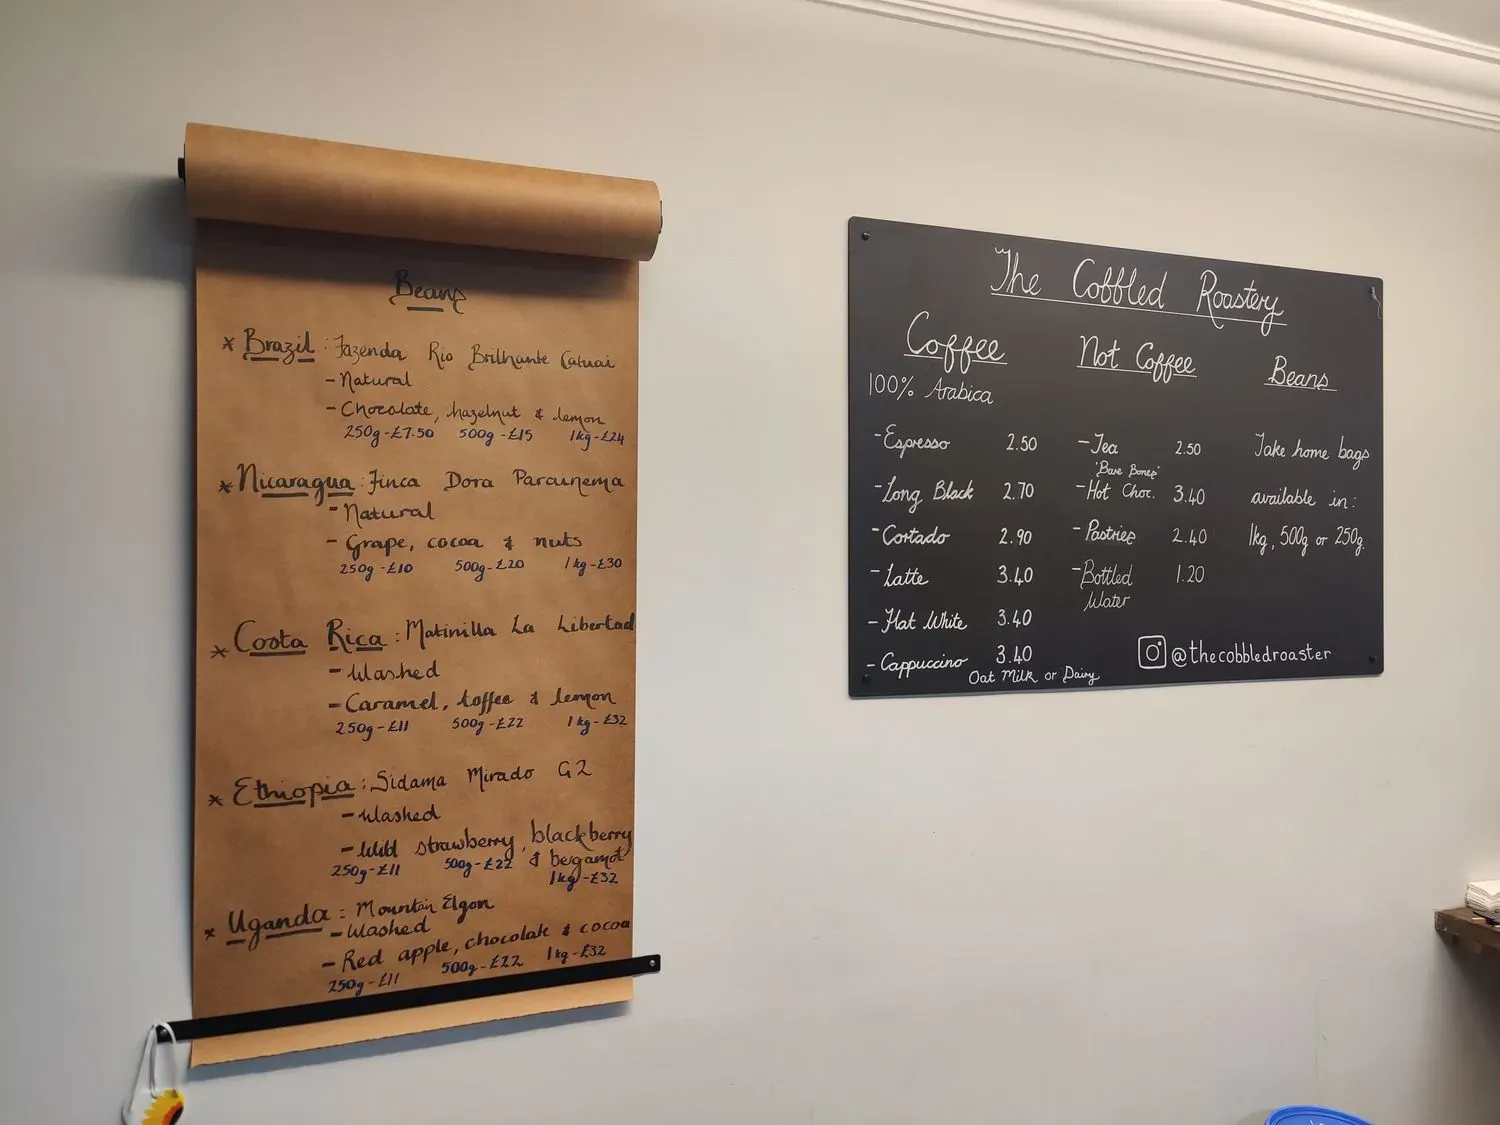 Beans
* Brazil : Fazenda Rio Brilhante Catuai
- Natural
- Chocolate, hazelnut & lemon
250g - £7.50 500g - £15 1kg - £24
* Nicaragua : Finca Dora Parainema
- Natural
- Grape, cocoa & nuts
250g - £10 500g - £20 1kg - £30
* Costa Rica : Matinilla La Libertad
- Washed
- Caramel, toffee & lemon
250g - £11 500g - £22 1kg - £32
* Ethiopia : Sidama Mirado G2
- Washed
- Wild strawberry, blackberry
& bergamot
250g - £11 500g - £22 1kg - £32
* Uganda : Mountain Elgon
- Washed
- Red apple, chocolate & cocoa
250g - £11 500g - £22 1kg - £32
The Cobbled Roastery
Coffee
100% Arabica
- Espresso 2.50
- Long Black 2.70
- Cortado 2.90
- Latte 3.40
- Flat White 3.40
- Cappuccino 3.40
Oat Milk or Dairy
Not Coffee
- Tea 2.50
'Bare Bones'
- Hot Choc. 3.40
- Pastries 2.40
- Bottled 1.20
Water
Beans
Take home bags
available in :
1kg, 500g or 250g.
@thecobbledroaster